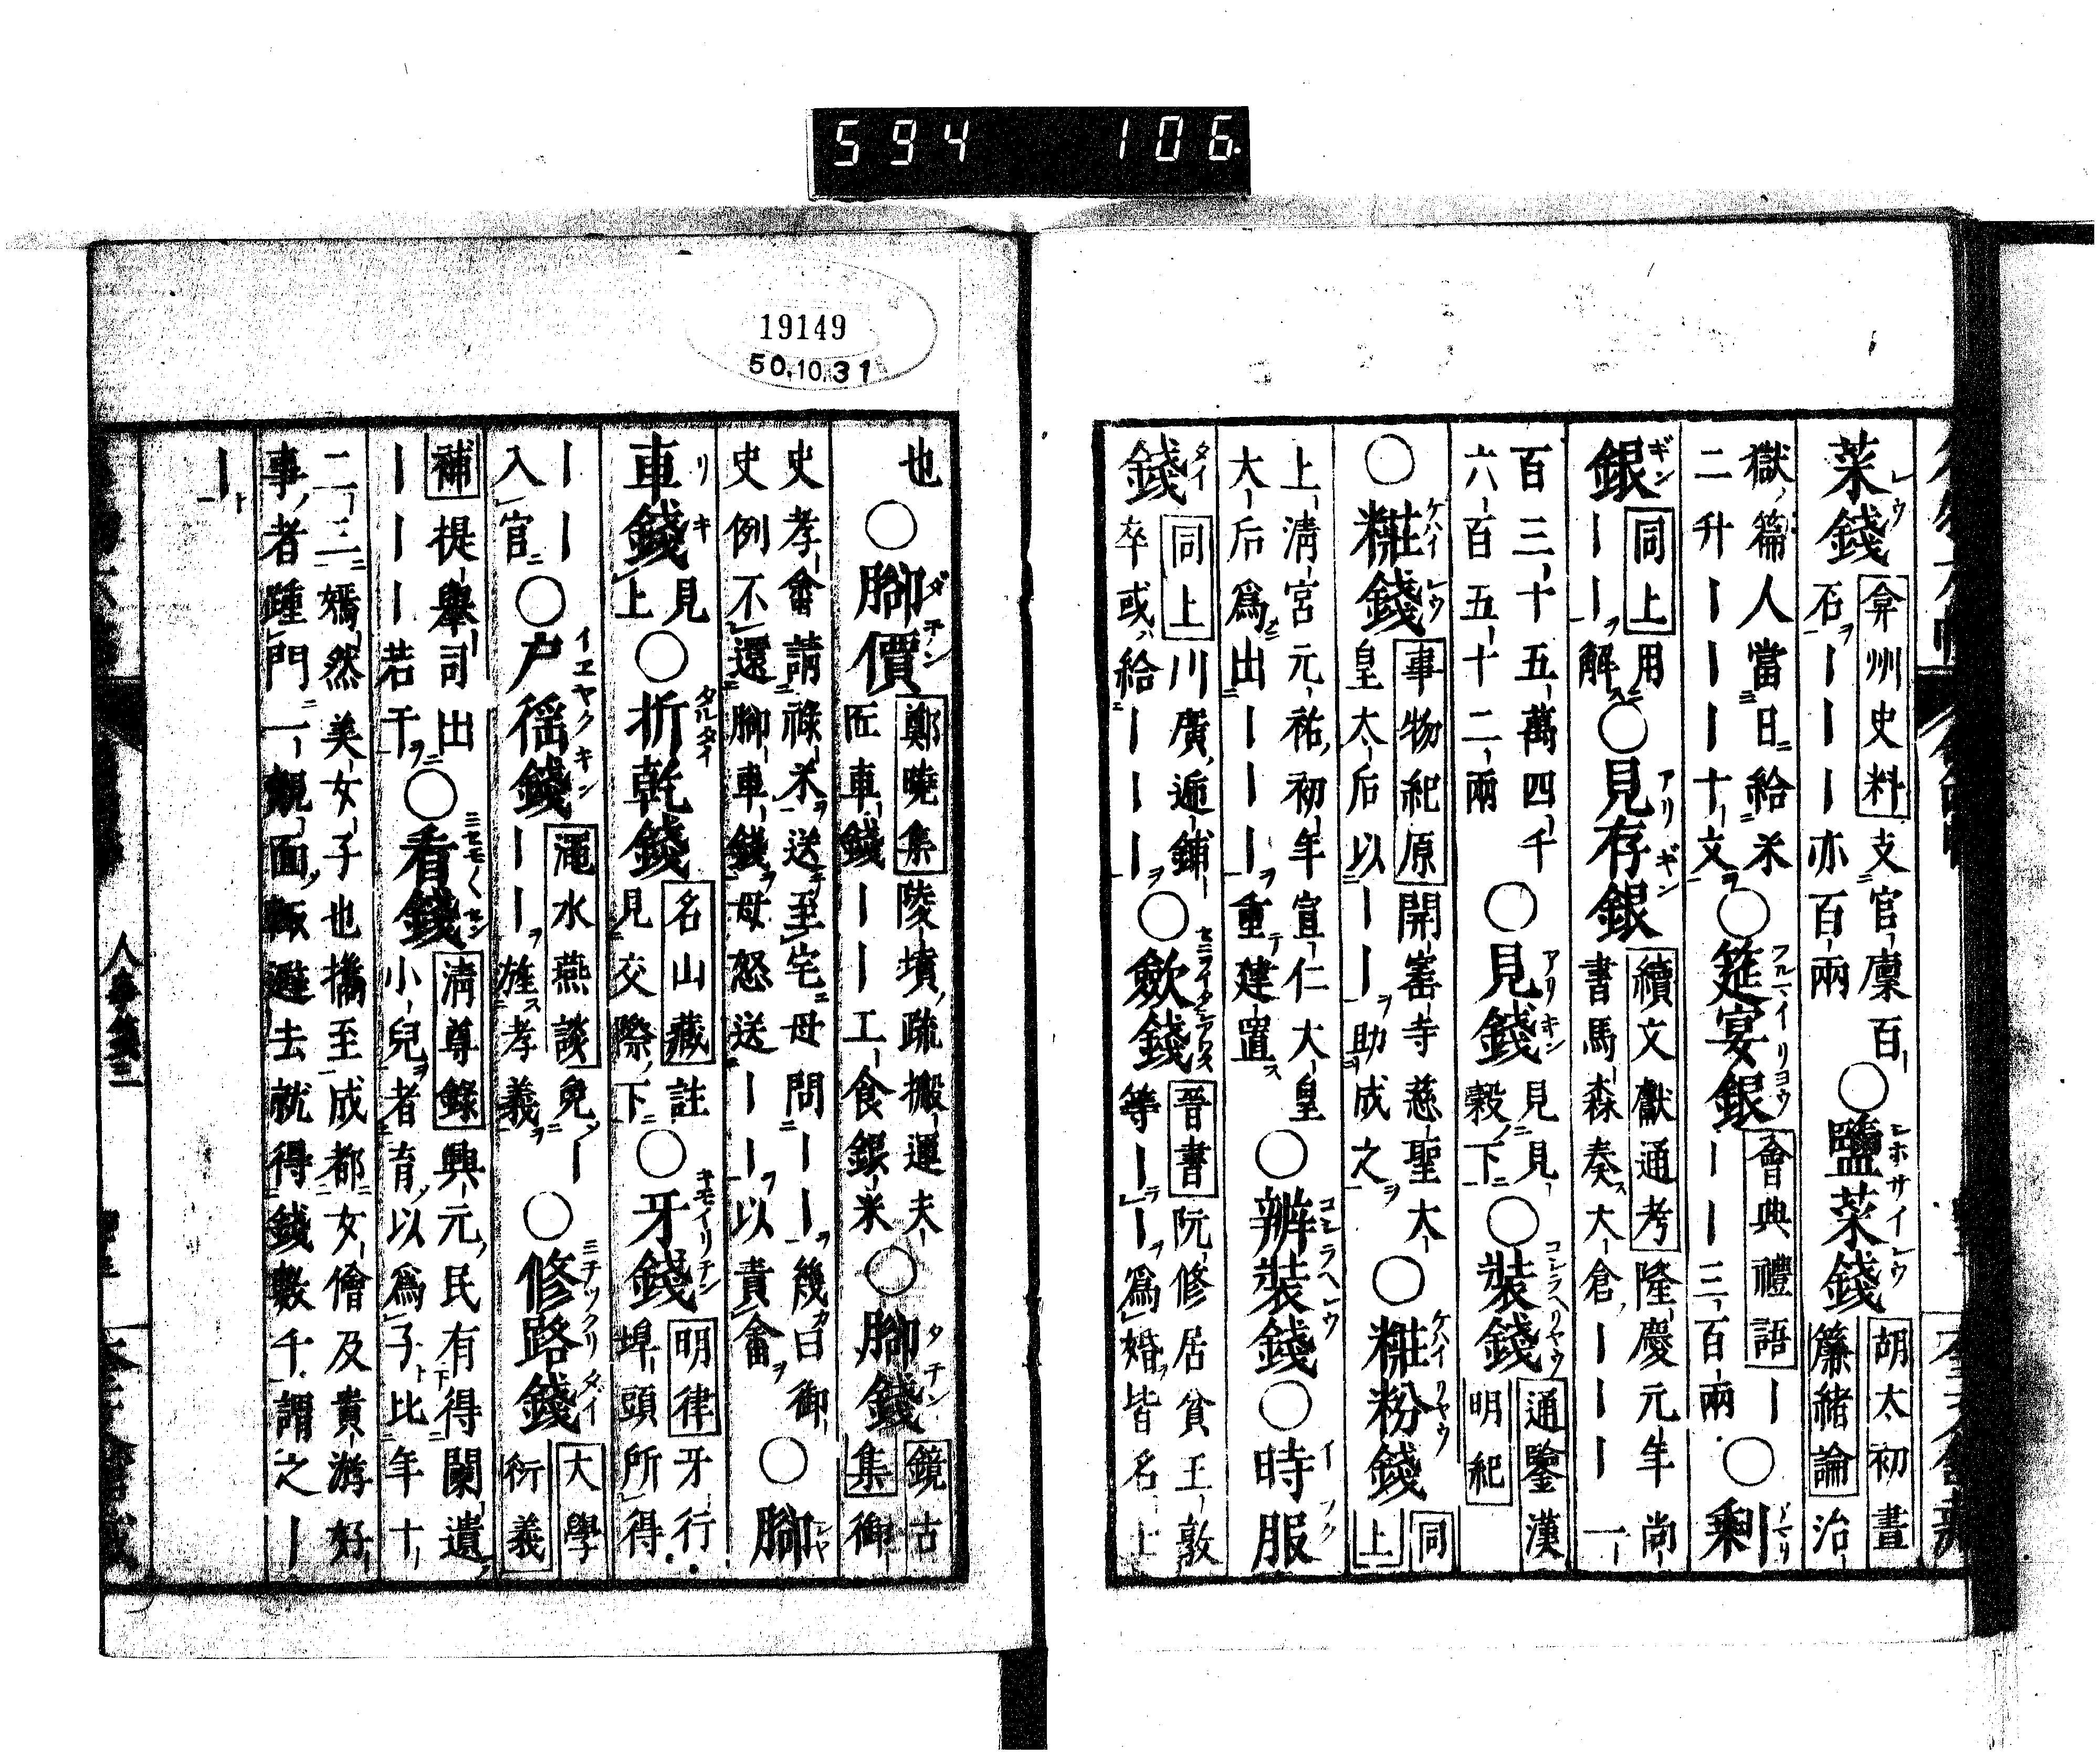 594 106
菜錢 弇州史料 支官廩百
石｜｜｜亦百兩 ○鹽菜錢 胡太初晝
簾緒論 治
獄篇人當日給米
二升｜｜｜十文 ○筵宴銀 會典禮語｜
｜｜三百兩 ○剩
銀 同上 用
｜｜解 ○見存銀 續文獻通考 隆慶元年尚
書馬森奏大倉｜｜｜一
百三十五萬四千
六百五十二兩 ○見錢 見見
穀下 ○裝錢 通鑒漢
明紀
○粧錢 事物紀原 開寳寺慈聖大
皇太后以｜｜助成之 ○粧粉錢 同
上
上清宮元祐初年宣仁大皇
大后爲出｜｜重建置 ○辦裝錢 ○時服
錢 同上 川廣遞鋪
卒或給｜｜｜ ○歛錢 晉書 阮修居貧王敦
等｜｜爲婚皆名士
19149
50.10.31
也 ○腳價 鄭曉集 陵墳疏搬運夫
匠車錢｜｜工食銀米 ○腳錢 鏡古
集 御
史孝畲請祿米送至宅母問｜｜幾曰御
史例不還腳車錢母怒送｜｜以責畲 ○腳
車錢 見
上 ○折乾錢 名山藏 註
見交際下 ○牙錢 明律 牙行
埠頭所得
｜｜
入官 ○户徭錢 澠水燕談 免｜
｜｜旌孝義 ○修路錢 大學
衍義
補 提舉司出
｜｜｜若干 ○看錢 清尊錄 興元民有得闌遺
小兒者育以爲子比年十
二三嫣然美女子也攜至成都女儈及貴游好
事者踵門一覿面輙避去就得錢數千謂之｜
｜
人事錢三